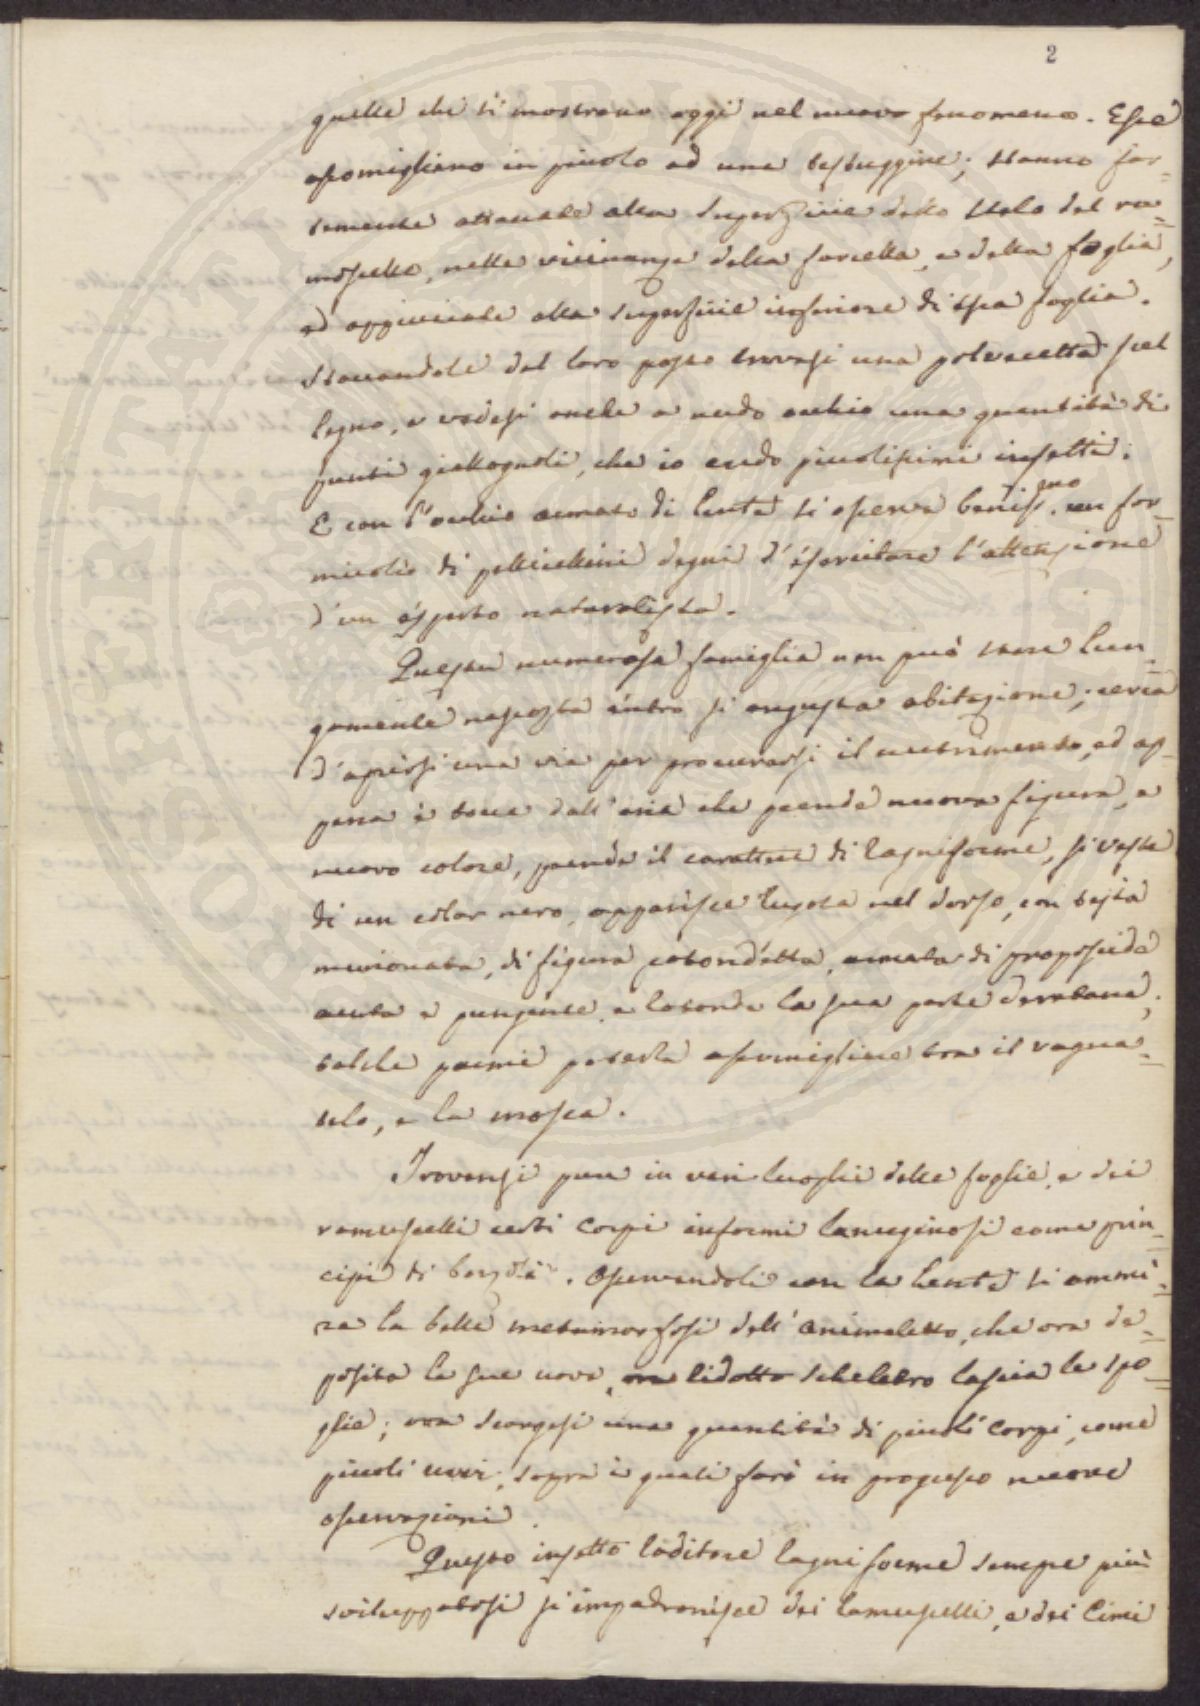 2
quelle che si mostrano oggi nel nuovo fenomeno. Esse
assomigliano in piccolo ad una testuggine; stanno for=
temente attaccate alla superficie dello stelo del ra=
moscello, nelle vicinanze della forcella, e della foglia,
ed appiccicate alla superficie inferiore di essa foglia.
Staccandole dal loro posto trovasi una polvescetta sul
legno, e vedesi anche a nudo occhio una quantità di
punti giallognoli, che io credo piccolissimi insetti.
E con l'occhio armato di lente si osserva beniss.mo un for=
micolio di pellicellini degni d'esercitare l'attenzione
d'un esperto naturalista.
Questa numerosa famiglia non può stare lun=
gamente nascosta entro sì angusta abitazione; cerca
d'aprirsi una via per procurarsi il nutrimento, ed ap=
pena è tocca dall'aria che prende nuova figura, e
nuovo colore, prende il carattere di ragniforme, si veste
di un color nero, apparisce rugosa nel dorso, con testa
, di figura rotondetta, armata di proboscide
acuta e pungente, e rotonda la sua parte deretana,
talche parmi poterla assomigliare tra il ragna=
telo, e la mosca.
Trovansi pure in varj luoghi delle foglie, e dei
ramuscelli certi corpi informi lanuginosi come prin=
cipi di . Osservandoli con la lente si ammi=
ra la bella metamorfosi dell'animaletto, che ora de=
posita le sue uova, ora ridotto scheletro lascia le spo=
glie; ora scorgesi una quantità di piccoli corpi, come
piccoli , sopra i quali farò in progresso nuove
osservazioni.
Questo insetto roditore ragniforme sempre più
sviluppatosi s'impadronisce dei ramuscelli, e dei cimi